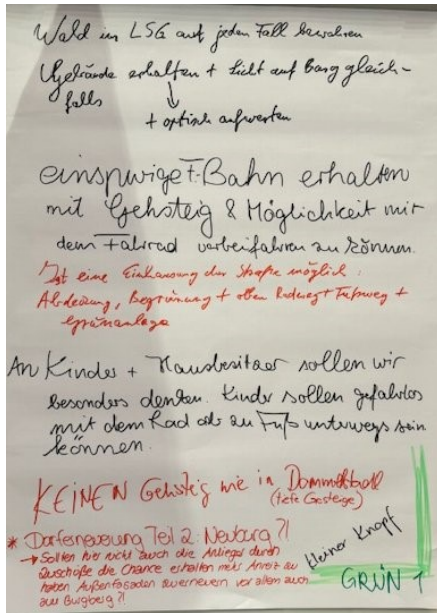 Wald im LSG auf jeden Fall bewahren
Gebäude erhalten + Licht auf Burg gleich-
falls
+ optisch aufwerten
einspurige F.Bahn erhalten
mit Gehsteig & Möglichkeit mit
dem Fahrrad vorbeifahren zu können.
Ist eine Einhausung der Straße möglich:
Abdeckung, Begrünung + oben Radweg + Fußweg +
Grünanlage
An Kinder + Hausbesitzer sollen wir
besonders denken. Kinder sollen gefahrlos
mit dem Rad oder zu Fuß unterwegs sein
können.
KEINEN Gehsteig wie in
(tiefe Gehsteige)
* Dorferneuerung Teil 2: Neuburg?!
→ Sollten hier nicht auch die Anlieger durch
Zuschüße die Chance erhalten mehr Anreiz zu
haben Außenfassaden zu erneuern vor allem auch
am Burgberg?!
kleiner Knopf
GRÜN 1